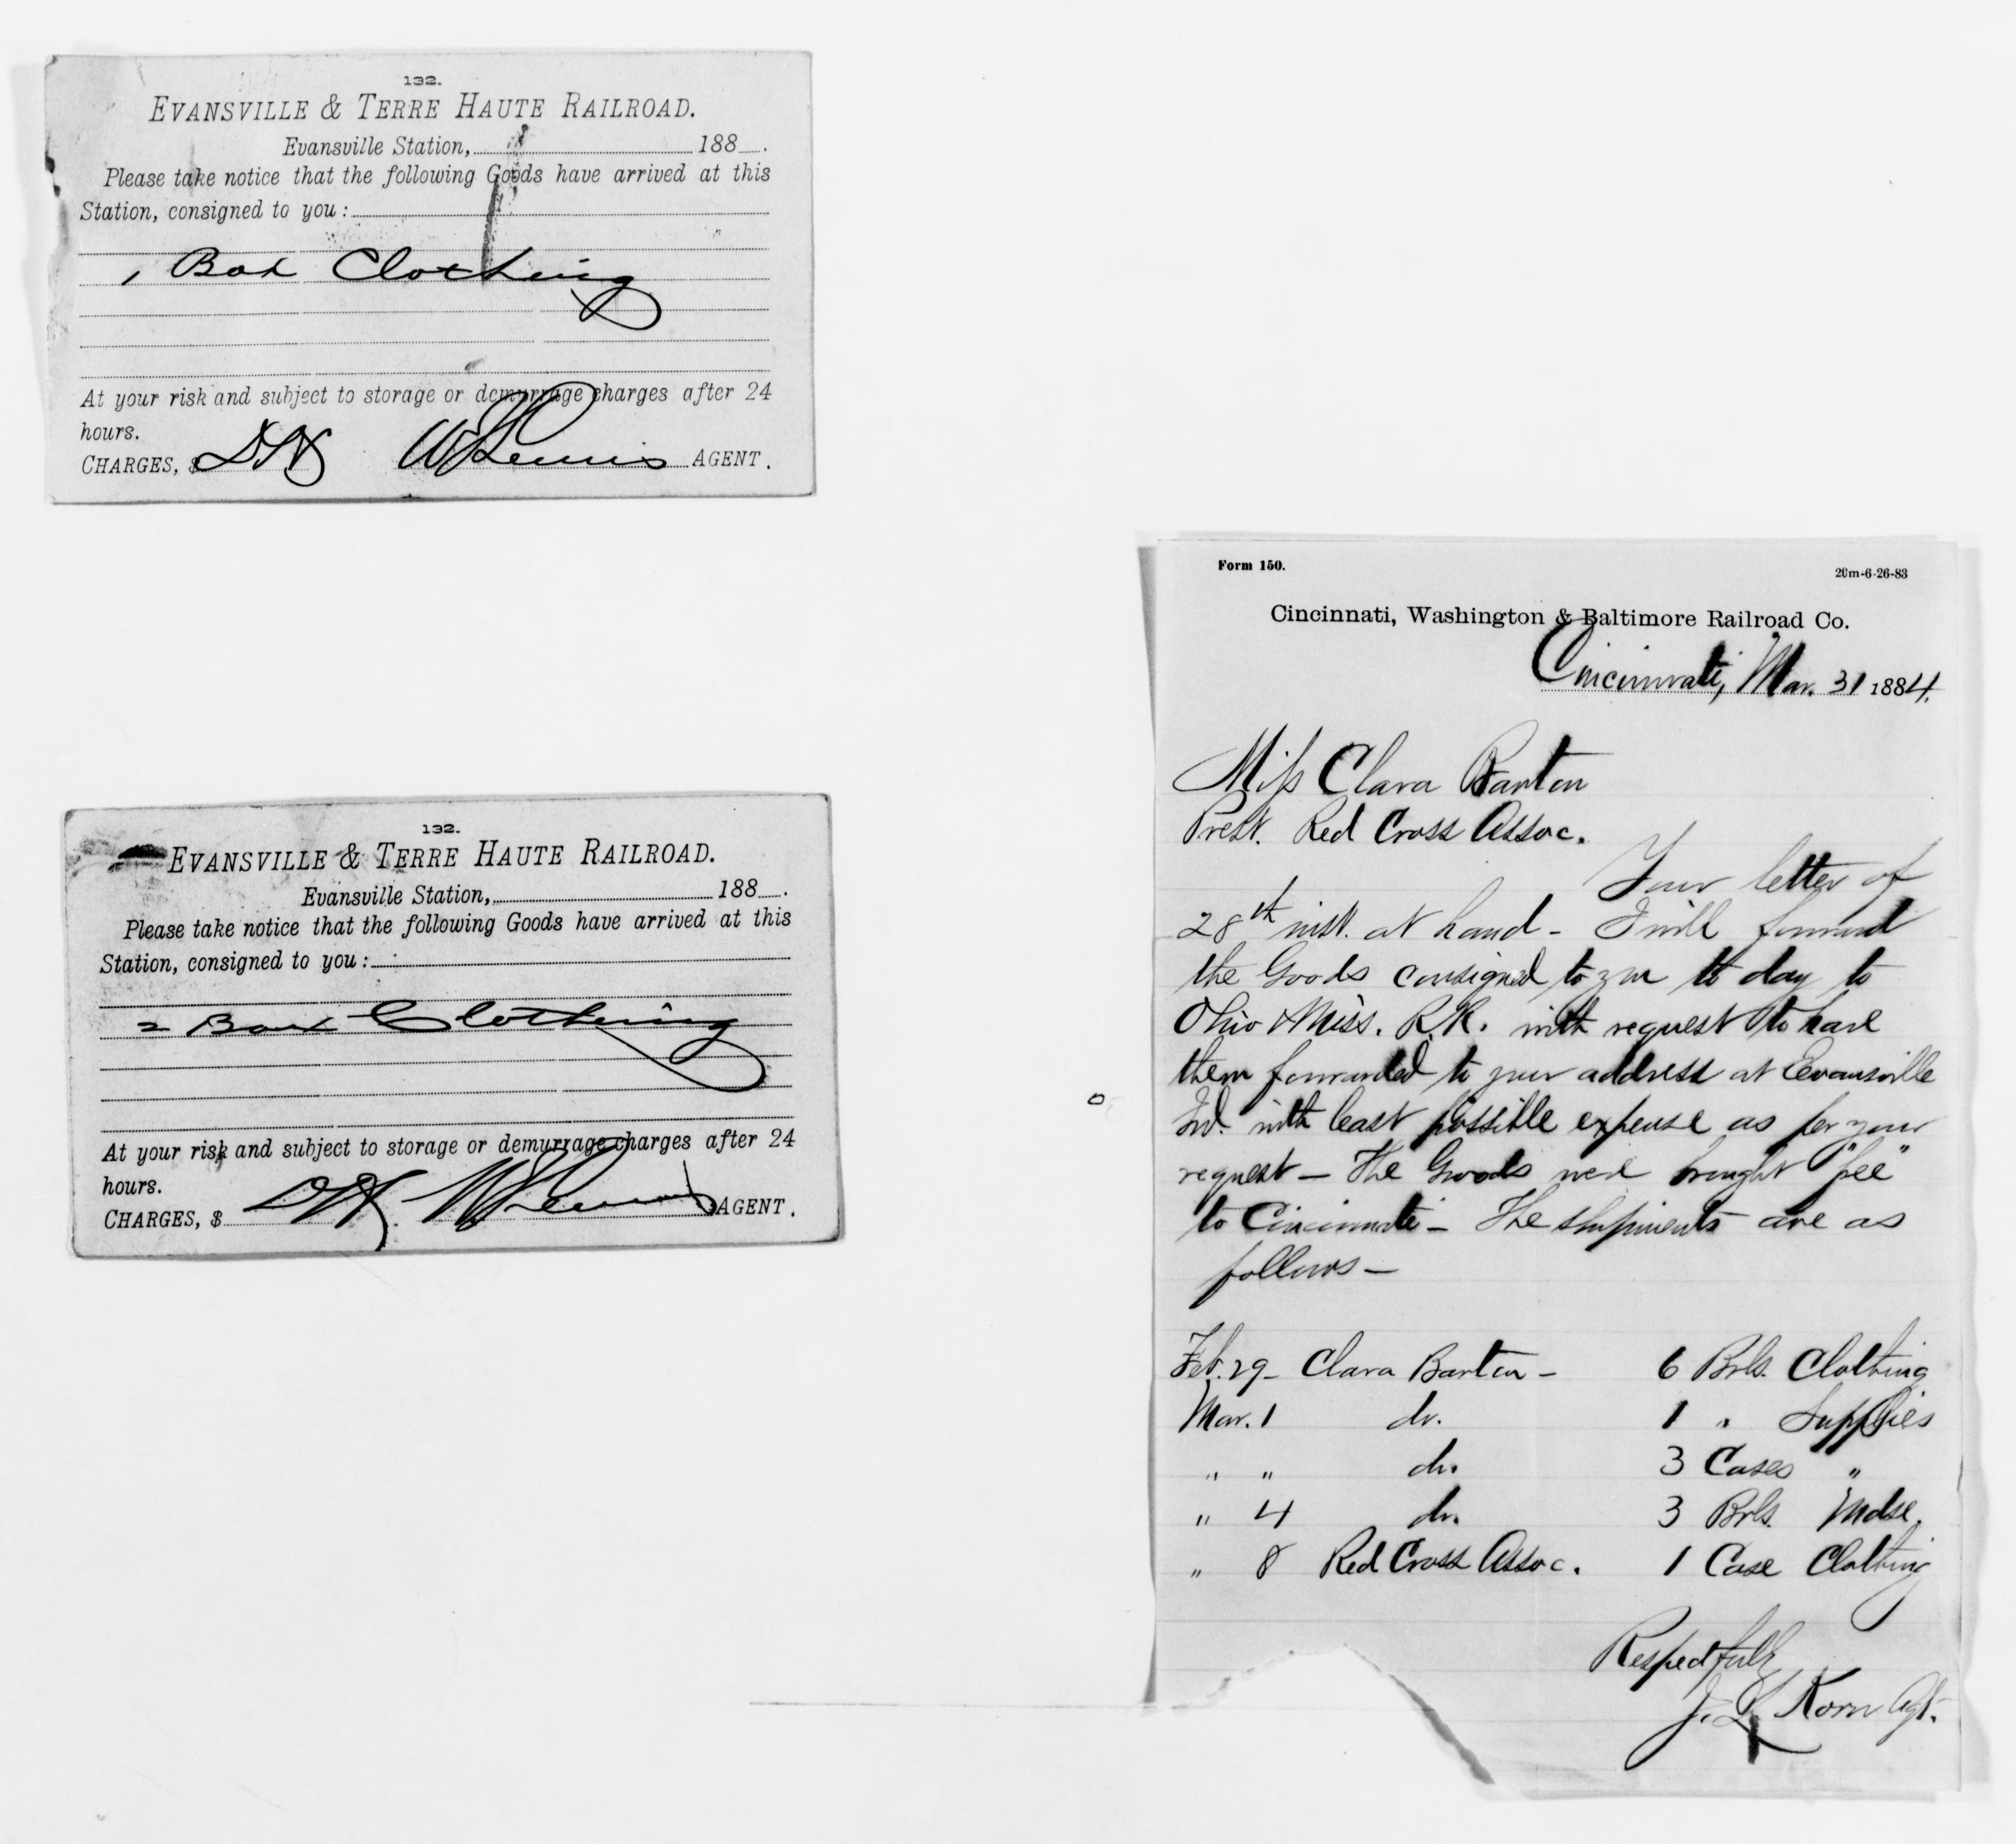 132.
EVANSVILLE & TERRE HAUTE RAILROAD.
Evansville Station, 188 .
Please take notice that the following Goods have arrived at this
Station, consigned to you :
1 Box Clothing
At your risk and subject to storage or demurrage charges after 24
hours.
CHARGES, $ DH W Lewis AGENT.
132.
EVANSVILLE & TERRE HAUTE RAILROAD.
Evansville Station, 188 .
Please take notice that the following Goods have arrived at this
Station, consigned to you :
2 Box Clothing
At your risk and subject to storage or demurrage charges after 24
hours.
CHARGES, $ DH. W Lewis AGENT.
Form 150.
20m-6-26-83
Cincinnati, Washington & Baltimore Railroad Co.
Cincinnati, Mar. 31 1884.
Miss Clara Barton
Prest. Red Cross Assoc.
Your letter of
28th inst. at hand - I will forward
the Goods consigned to you to day to
Ohio & Miss. R.R. with request to have
them forwarded to your address at Evansville
Ind. with least possible expense as per your
request - The Goods were brought "free"
to Cincinnati - The shipments are as
follows -
Feb. 29 - Clara Barton - 6 Brls. Clothing
Mar. 1 do. 1 " Supplies
" " do. 3 Cases "
" 4 do. 3 Brls. Mdse.
" 8 Red Cross Assoc. 1 Case Clothing
Respectfully
J. L. Korn Agt.